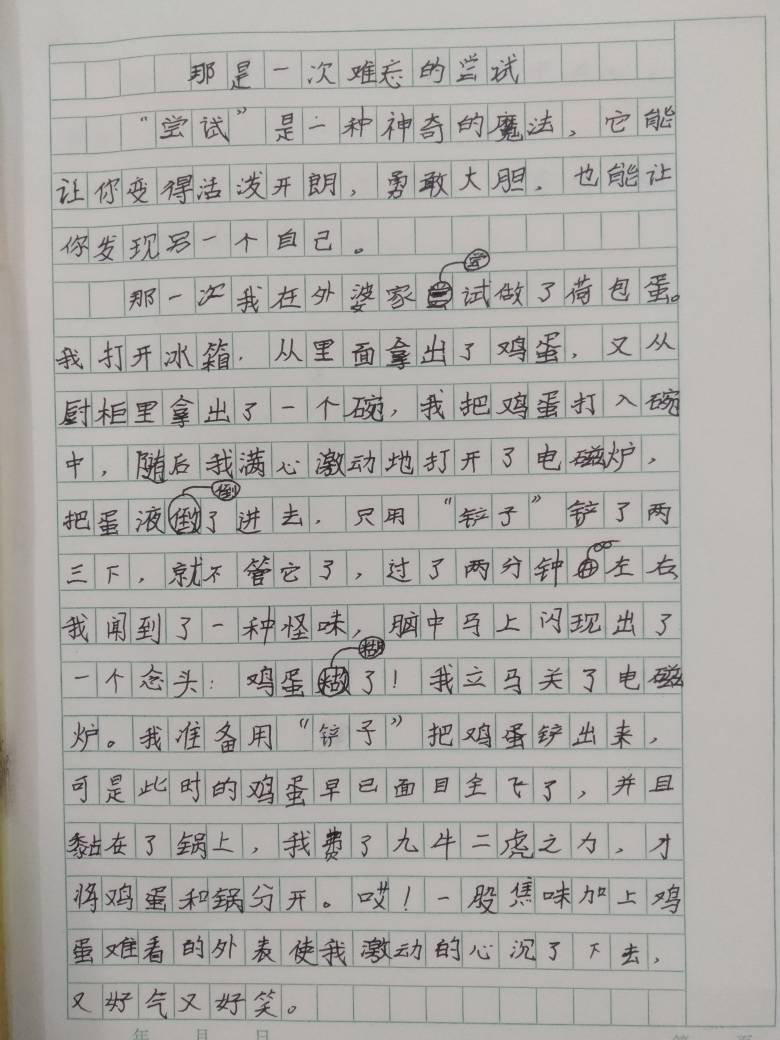 那是一次难忘的尝试
“尝试”是一种神奇的魔法，它能
让你变得活泼开朗，勇敢大胆，也能让
你发现另一个自己。
那一次我在外婆家尝试做了荷包蛋。
我打开冰箱，从里面拿出了鸡蛋，又从
厨柜里拿出了一个碗，我把鸡蛋打入碗
中，随后我满心激动地打开了电磁炉，
把蛋液倒了进去，只用“铲子”铲了两
三下，就不管它了，过了两分钟左右
我闻到了一种怪味，脑中马上闪现出了
一个念头：鸡蛋糊了！我立马关了电磁
炉。我准备用“铲子”把鸡蛋铲出来，
可是此时的鸡蛋早已面目全飞了，并且
黏在了锅上，我费了九牛二虎之力，才
将鸡蛋和锅分开。哎！一股焦味加上鸡
蛋难看的外表使我激动的心沉了下去，
又好气又好笑。
年 月 日